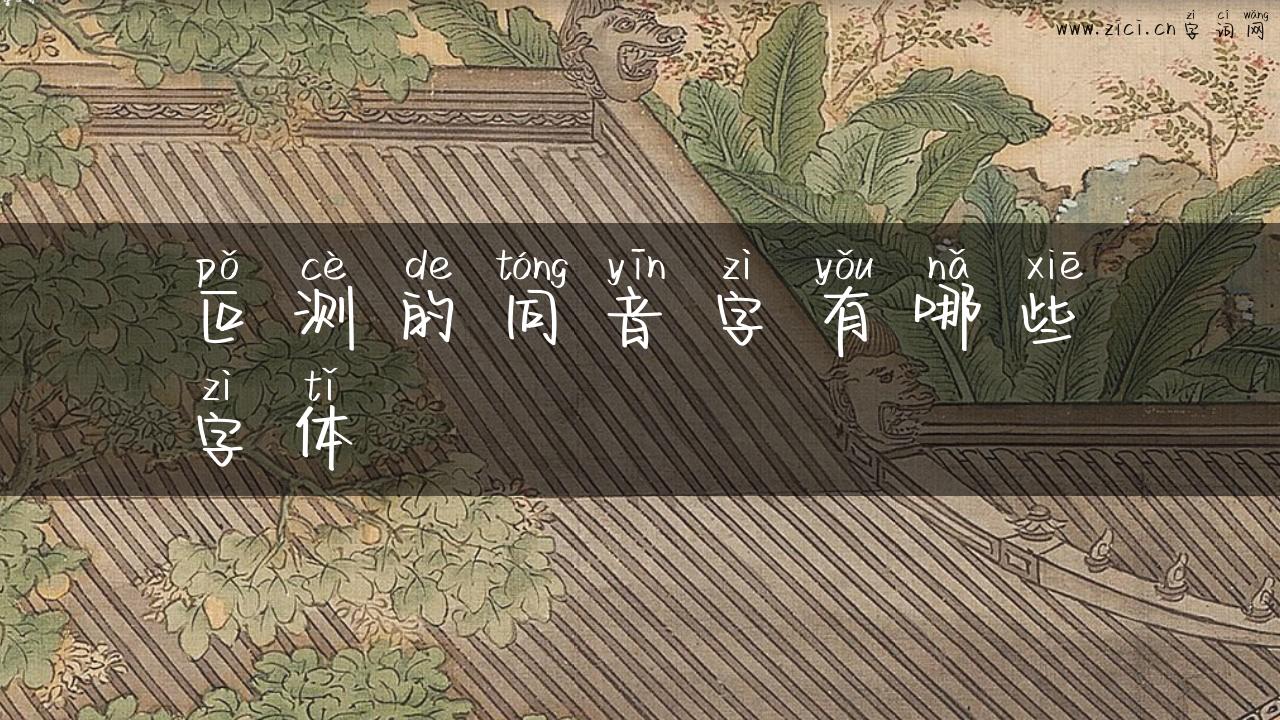 zì cí wǎng
www.zici.cn 字词网
pǒ cè de tóng yīn zì yǒu nǎ xiē
叵测的同音字有哪些
zì tǐ
字体